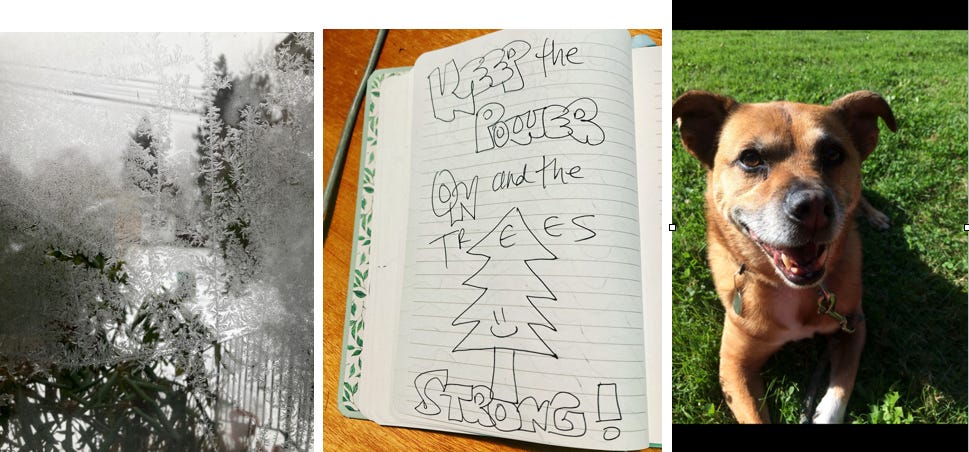 KEEP the
POWER
ON and the
TREES
STRONG!